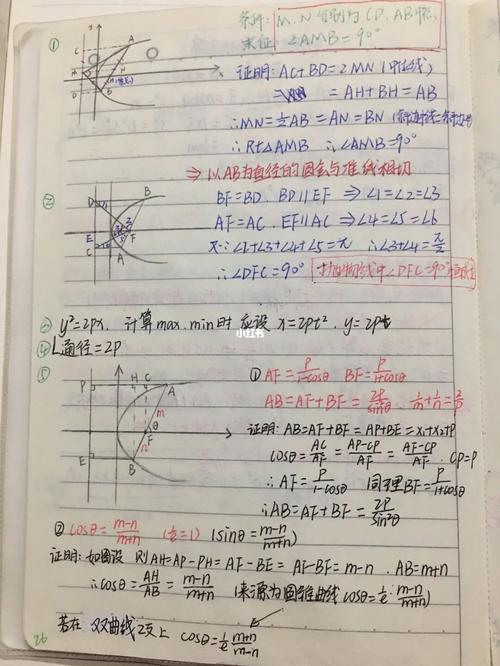 条件: M、N分别为CD、AB中点
求证: ∠AMB=90°
①
证明: AC+BD=2MN (中位线)
= AH+BH=AB
∴MN=½AB=AN=BN
∴Rt△AMB ∴∠AMB=90°
⇒以AB为直径的圆会与准线相切
②
BF=BD, BD∥EF ⇒∠1=∠2=∠3
AF=AC, EF∥AC ⇒∠4=∠5=∠6
又∵∠1+∠3+∠4+∠5=π ∴∠3+∠4=π/2
∴∠DFC=90° 抛物线中∠DFC=90°
③ y²=2px, 计算max、min时应设 x=2pt², y=2pt
小红书
④ 通径=2P
⑤
① AF=P/1-cosθ BF=P/1+cosθ
AB=AF+BF=2P/sin²θ 1/m+1/n=2/P
证明: AB=AF+BF=AP+BE=x₁+x₂+P
cosθ=AC/AF=AP-CP/AF=AF-CP/AF, CP=P
∴AF=P/1-cosθ 同理BF=P/1+cosθ
∴AB=AF+BF=2P/sin²θ
② cosθ=m-n/m+n (½=1) (sinθ=m-n/m+n)
证明: 如图设 则AH=AP-PH=AF-BE=AF-BF=m-n, AB=m+n
∴cosθ=AH/AB=m-n/m+n (来源为圆锥曲线 cosθ=1/e·m-n/m+n)
若在双曲线2支上 cosθ=1/e m+n/m-n
26